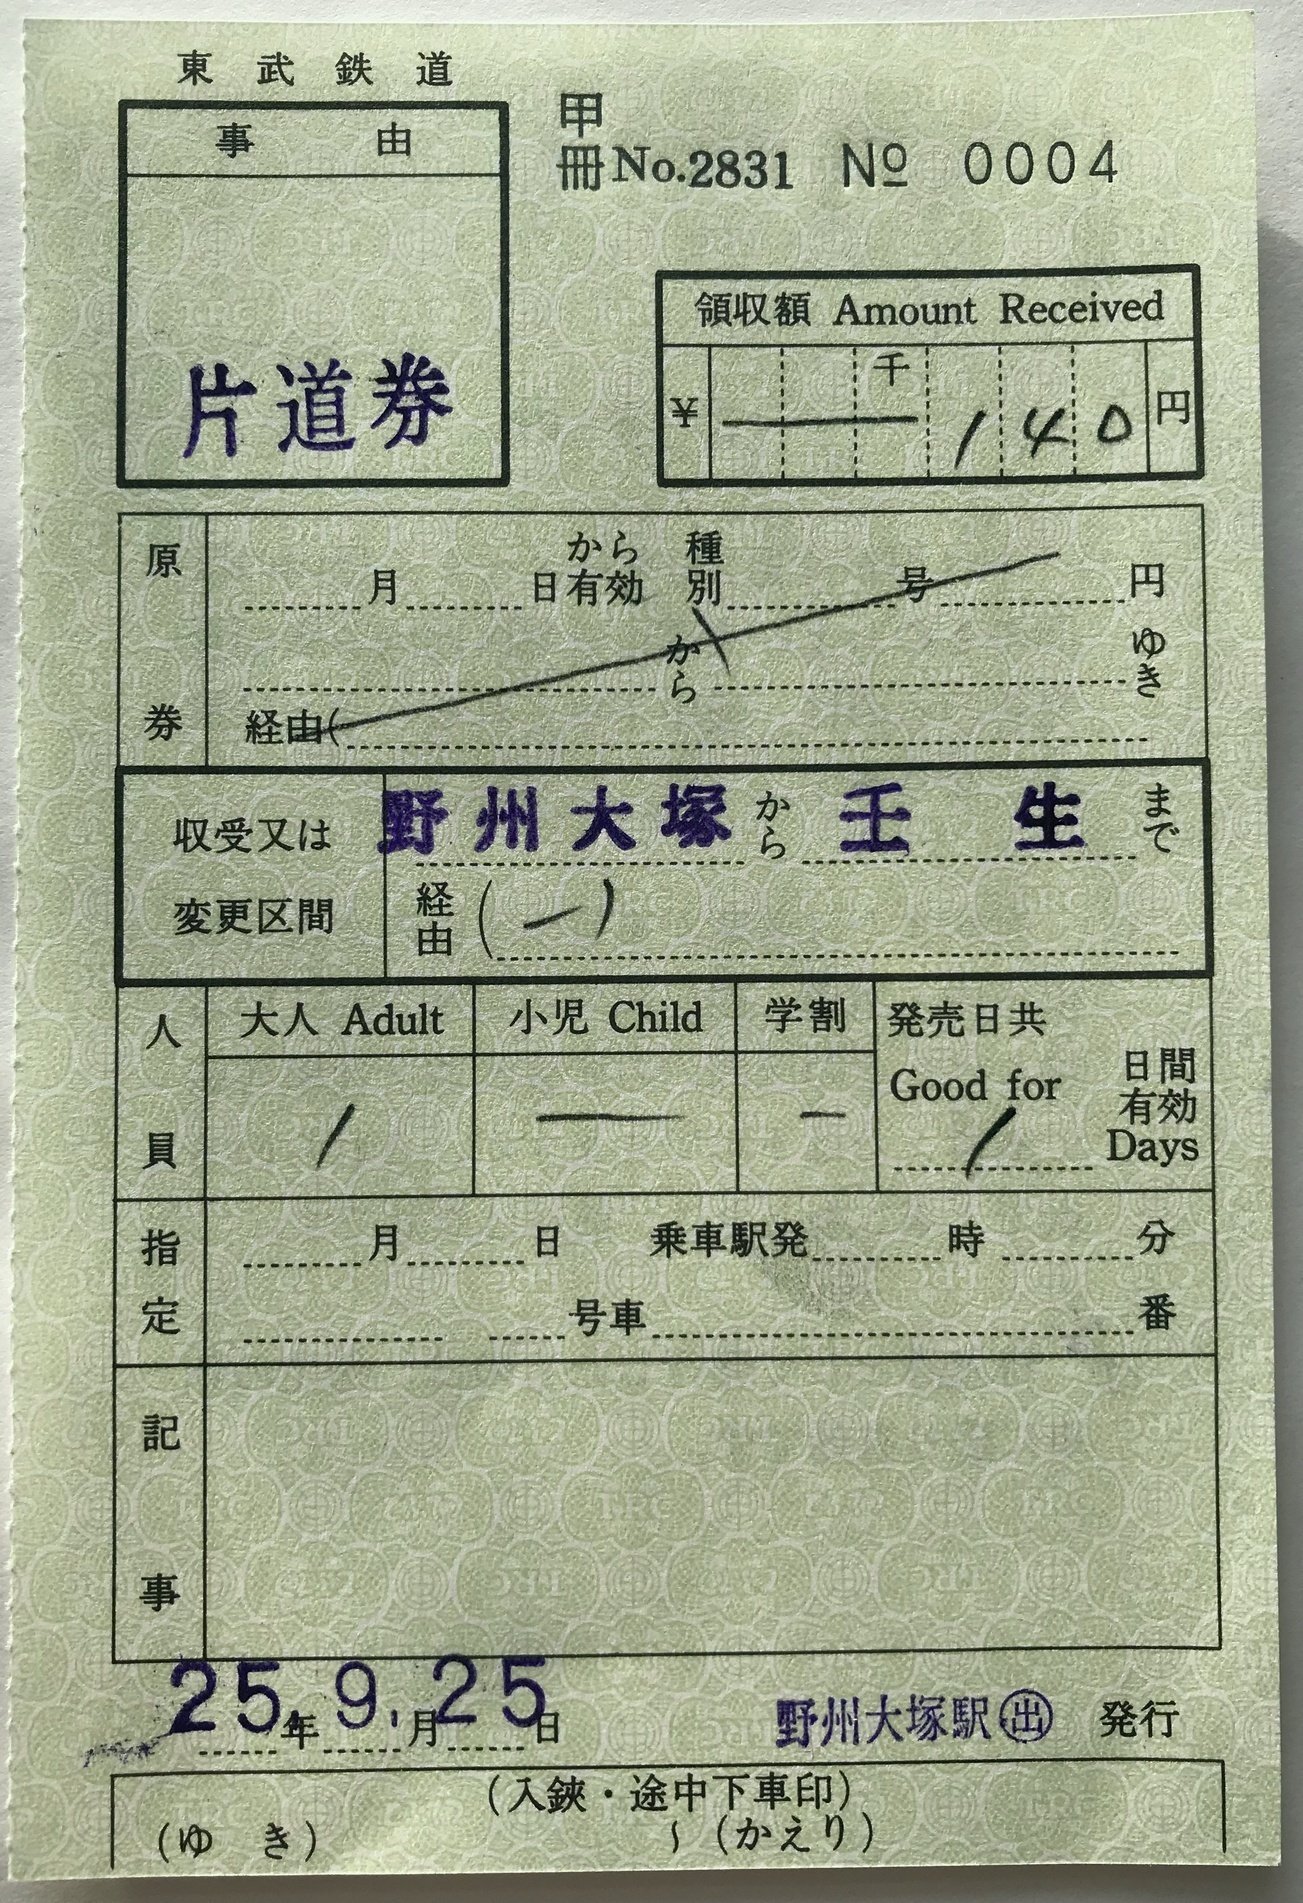 東武鉄道
事由
片道券
甲
冊No.2831 No 0004
領収額 Amount Received
¥ 千 140 円
原券
月 日から有効 種別 号 円
から ゆき
経由(
収受又は
変更区間
野州大塚から壬生まで
経由(—)
人員
大人 Adult 小児 Child 学割
1 — —
発売日共
Good for 1 日間有効 Days
指定
月 日 乗車駅発 時 分
号車 番
記事
25年9.月25日
野州大塚駅㊤発行
(入鋏・途中下車印)
(ゆき) 〜(かえり)